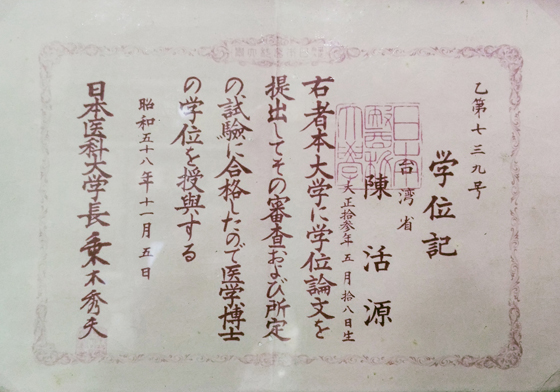 乙第七三九号
学位記
台湾省
陳活源
大正拾参年五月拾八日生
右者本大学に学位論文を
提出してその審査および所定
の試験に合格したので医学博士
の学位を授與する
昭和五十八年十一月五日
日本医科大学長乗木秀夫